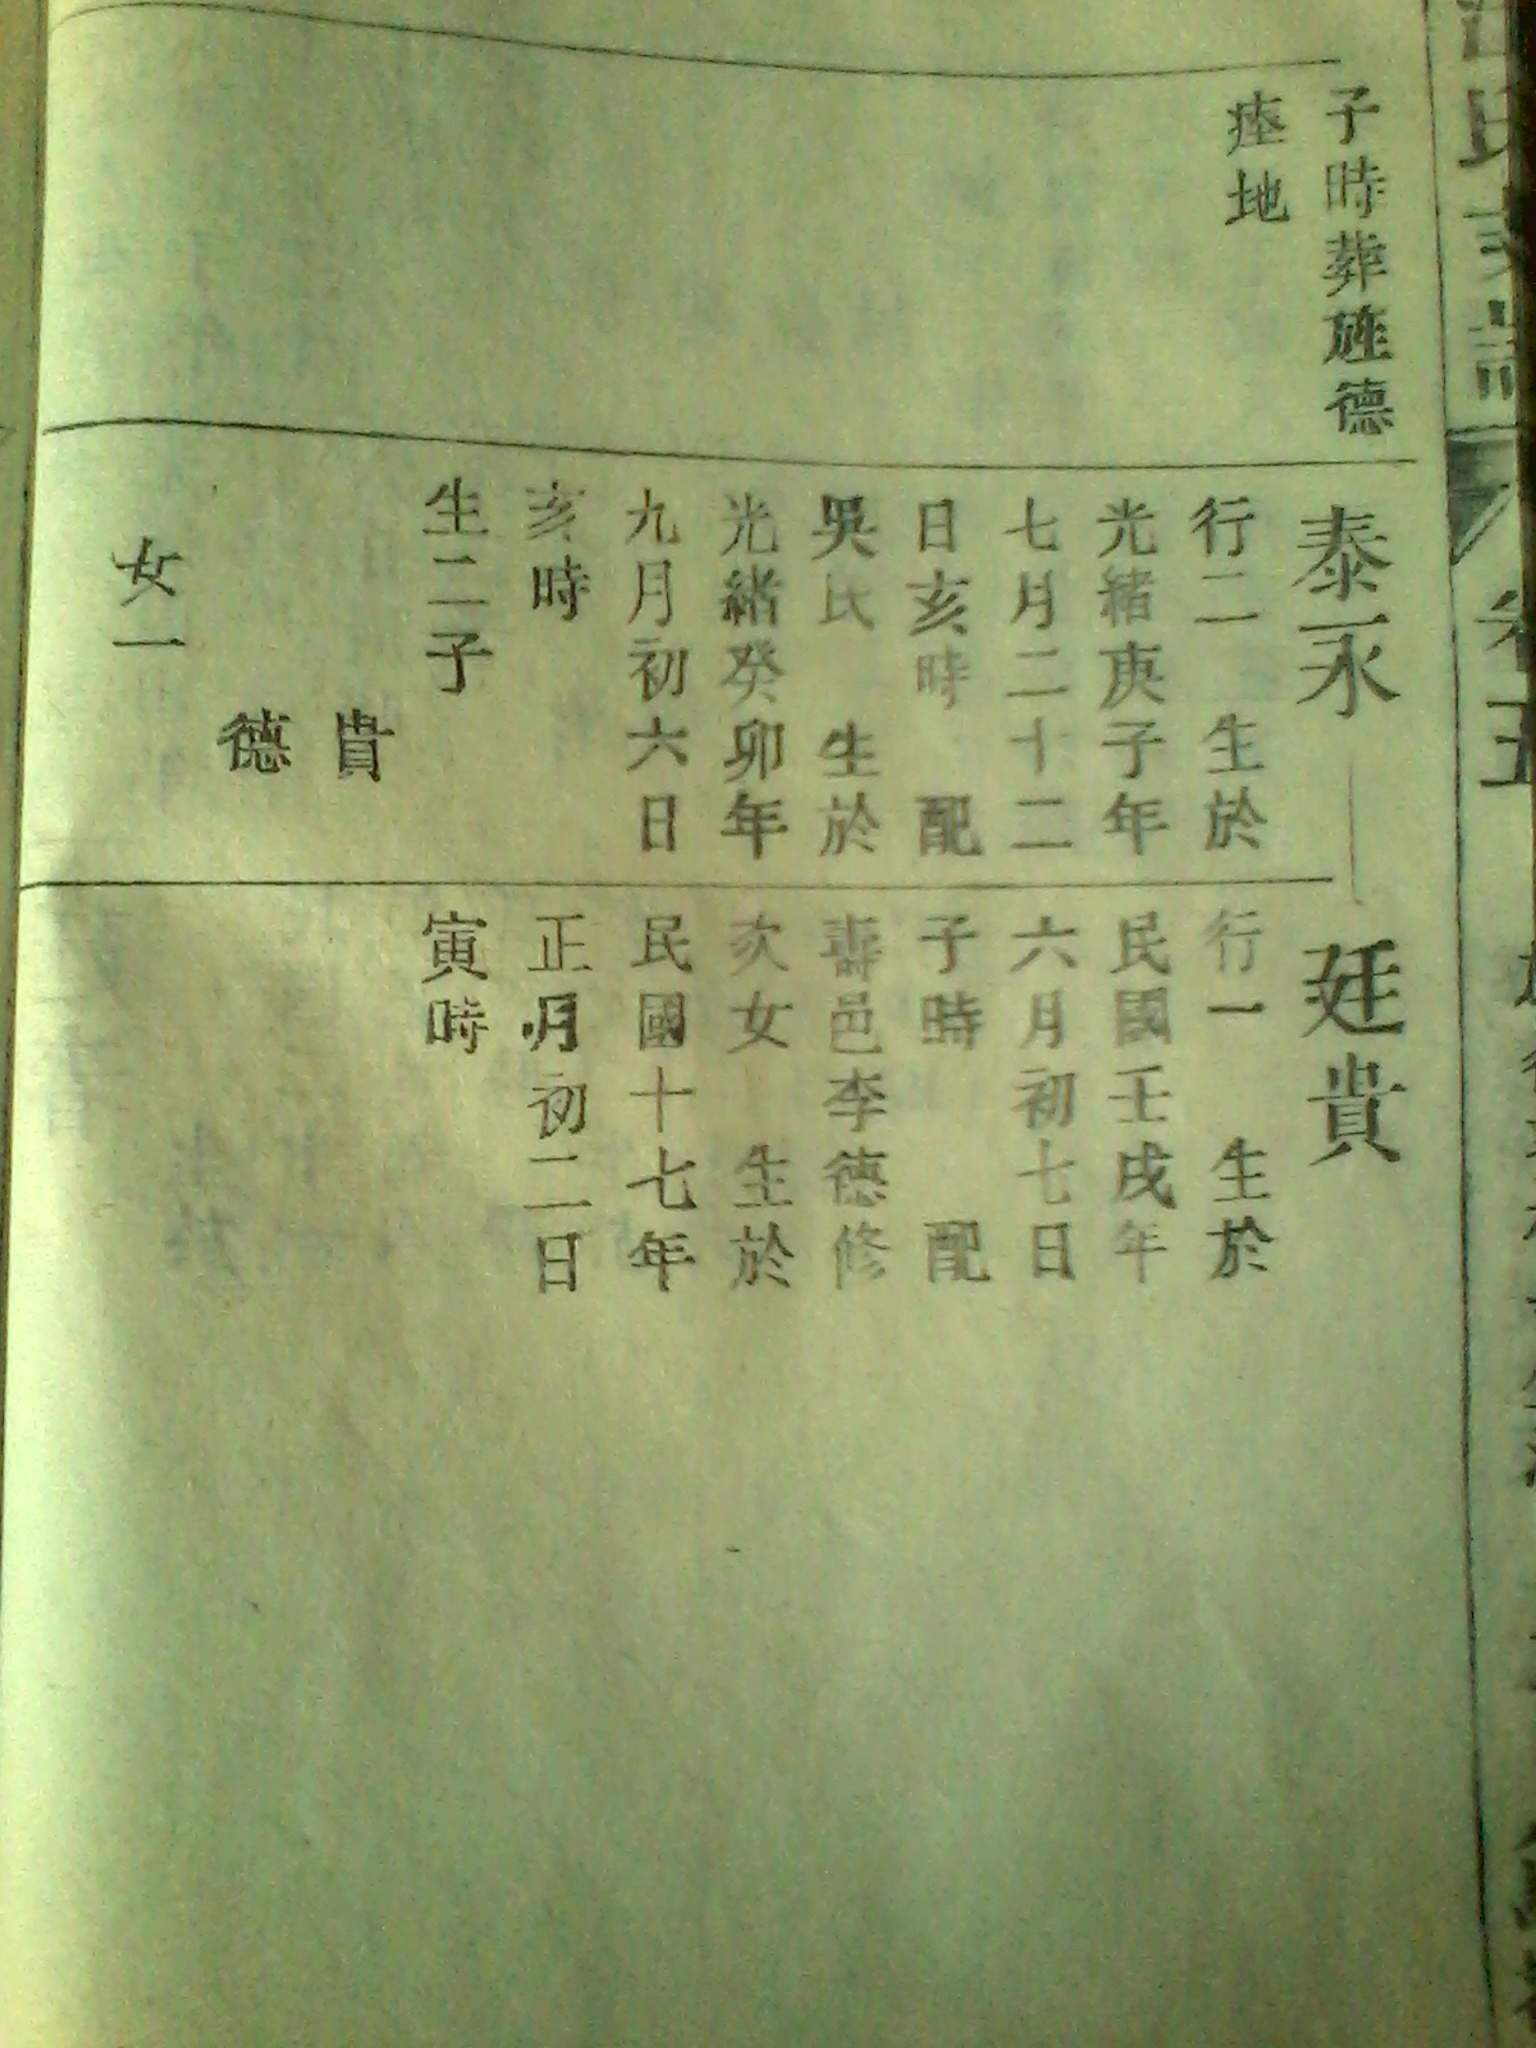 子時葬旌德
瘞地
泰永
行二　生於
光緒庚子年
七月二十二
日亥時　配
吳氏　生於
光緒癸卯年
九月初六日
亥時
生二子
貴
德
女一
廷貴
行一　生於
民國壬戌年
六月初七日
子時　配
壽邑李德修
次女　生於
民國十七年
正月初二日
寅時